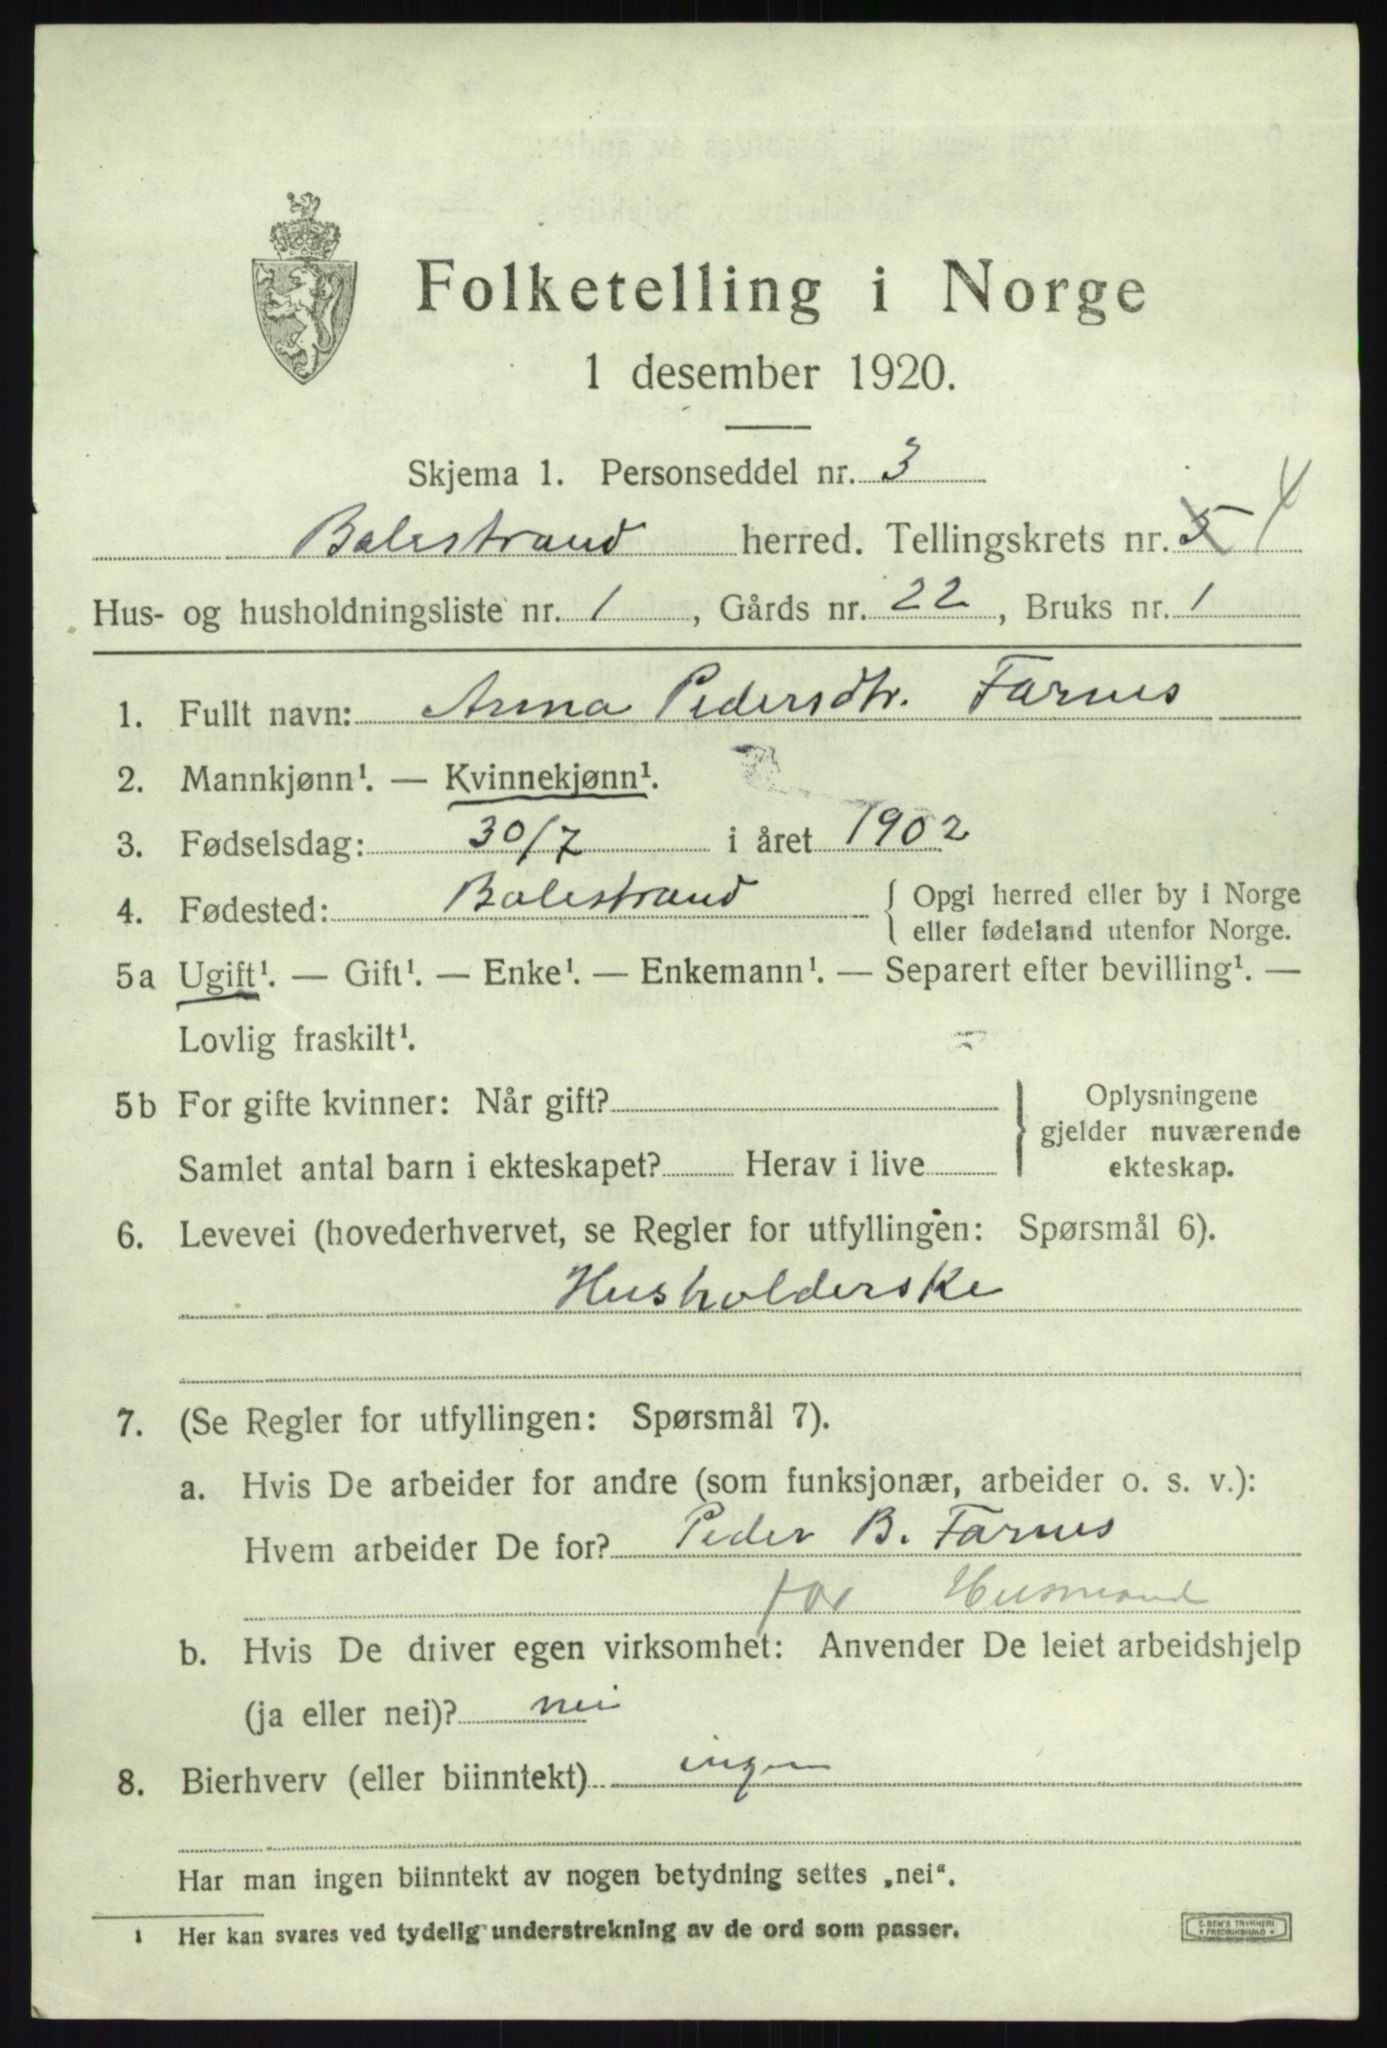 Folketelling i Norge
1 desember 1920.
Skjema 1. Personseddel nr. 3
Balestrand herred. Tellingskrets nr. 5 4
Hus- og husholdningsliste nr. 1, Gårds nr. 22, Bruks nr. 1
1. Fullt navn: Anna Pedersdtr. Farnes
2. Mannkjønn¹. — Kvinnekjønn¹.
3. Fødselsdag: 30/7 i året 1902
4. Fødested: Balestrand { Opgi herred eller by i Norge
eller fødeland utenfor Norge.
5a Ugift¹. — Gift¹. — Enke¹. — Enkemann¹. — Separert efter bevilling¹. —
Lovlig fraskilt¹.
5b For gifte kvinner: Når gift?
Samlet antal barn i ekteskapet? Herav i live
Oplysningene
gjelder nuværende
ekteskap.
6. Levevei (hovederhvervet, se Regler for utfyllingen: Spørsmål 6).
Husholderske
7. (Se Regler for utfyllingen: Spørsmål 7).
a. Hvis De arbeider for andre (som funksjonær, arbeider o. s. v.):
Hvem arbeider De for? Peder B. Farnes
far Husmand
b. Hvis De driver egen virksomhet: Anvender De leiet arbeidshjelp
(ja eller nei)? nei
8. Bierhverv (eller biinntekt) ingen
Har man ingen biinntekt av nogen betydning settes „nei“.
1 Her kan svares ved tydelig understrekning av de ord som passer.
E. SEM'S TRYKKERI
* FREDRIKSHALD *